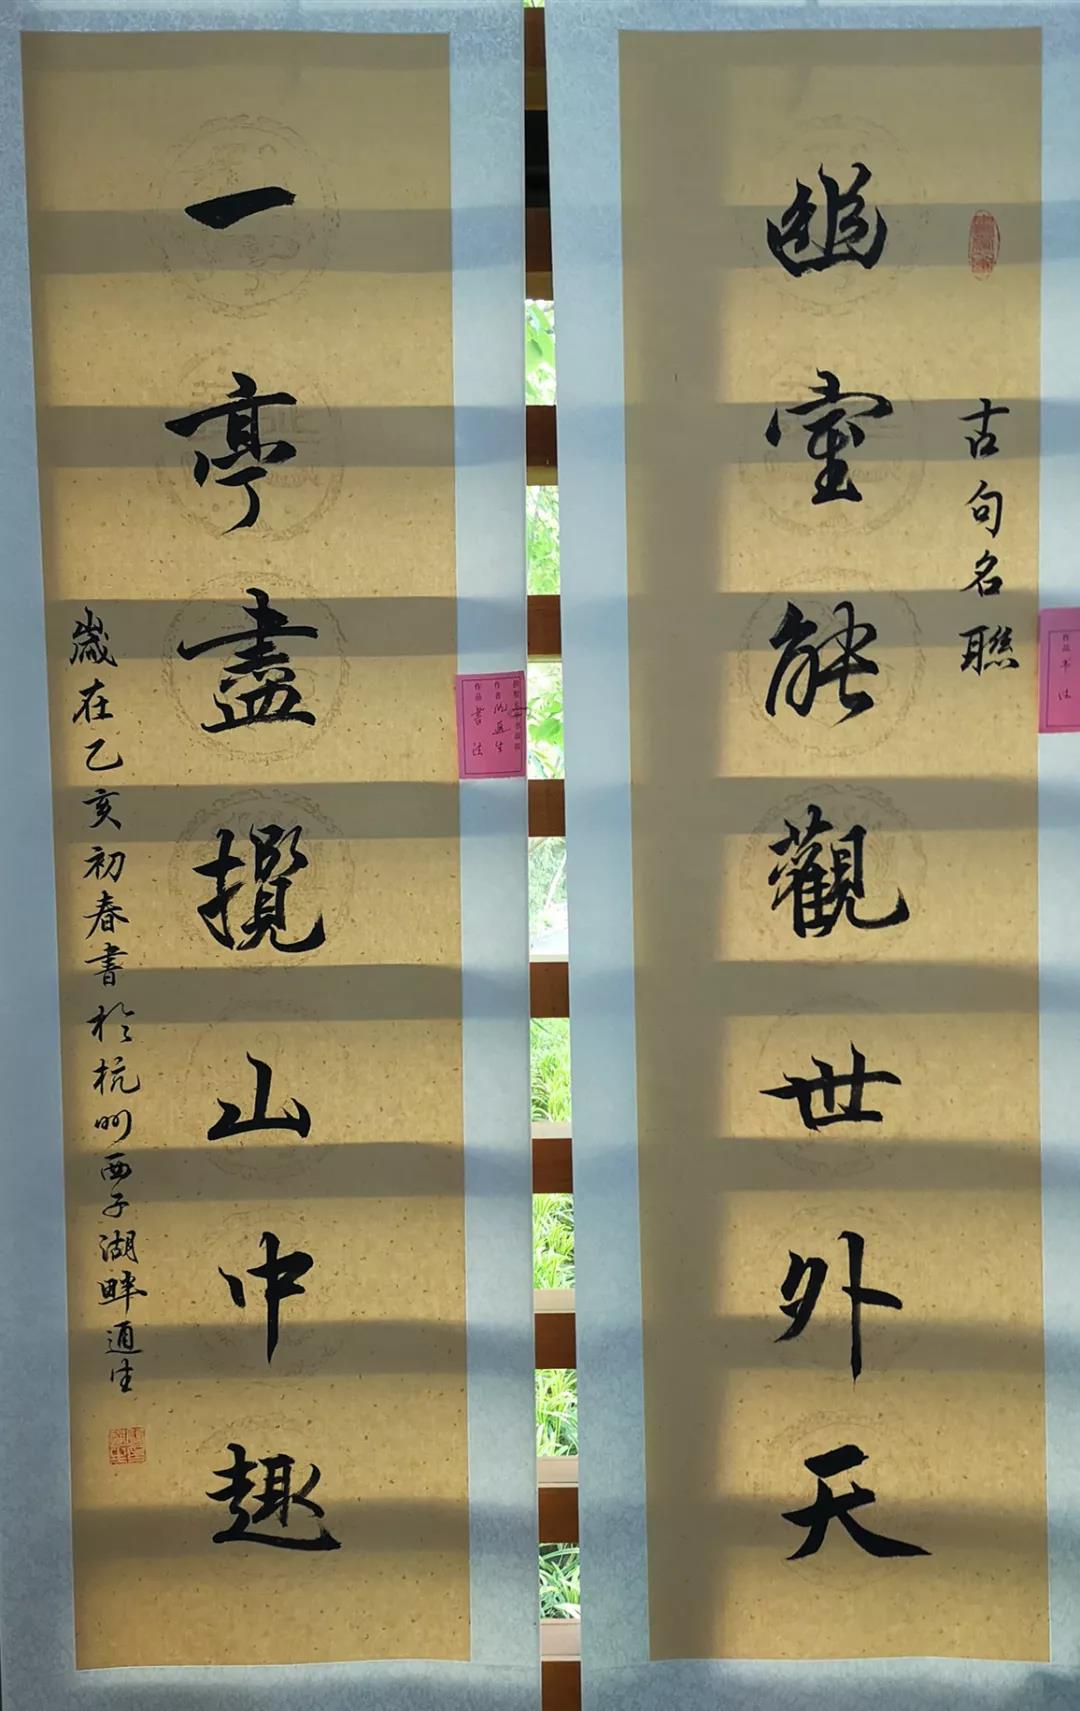 古句名聯
幽室能觀世外天
一亭盡攬山中趣
歲在乙亥初春書於杭州西子湖畔
作品 书法
作者
作品 書法